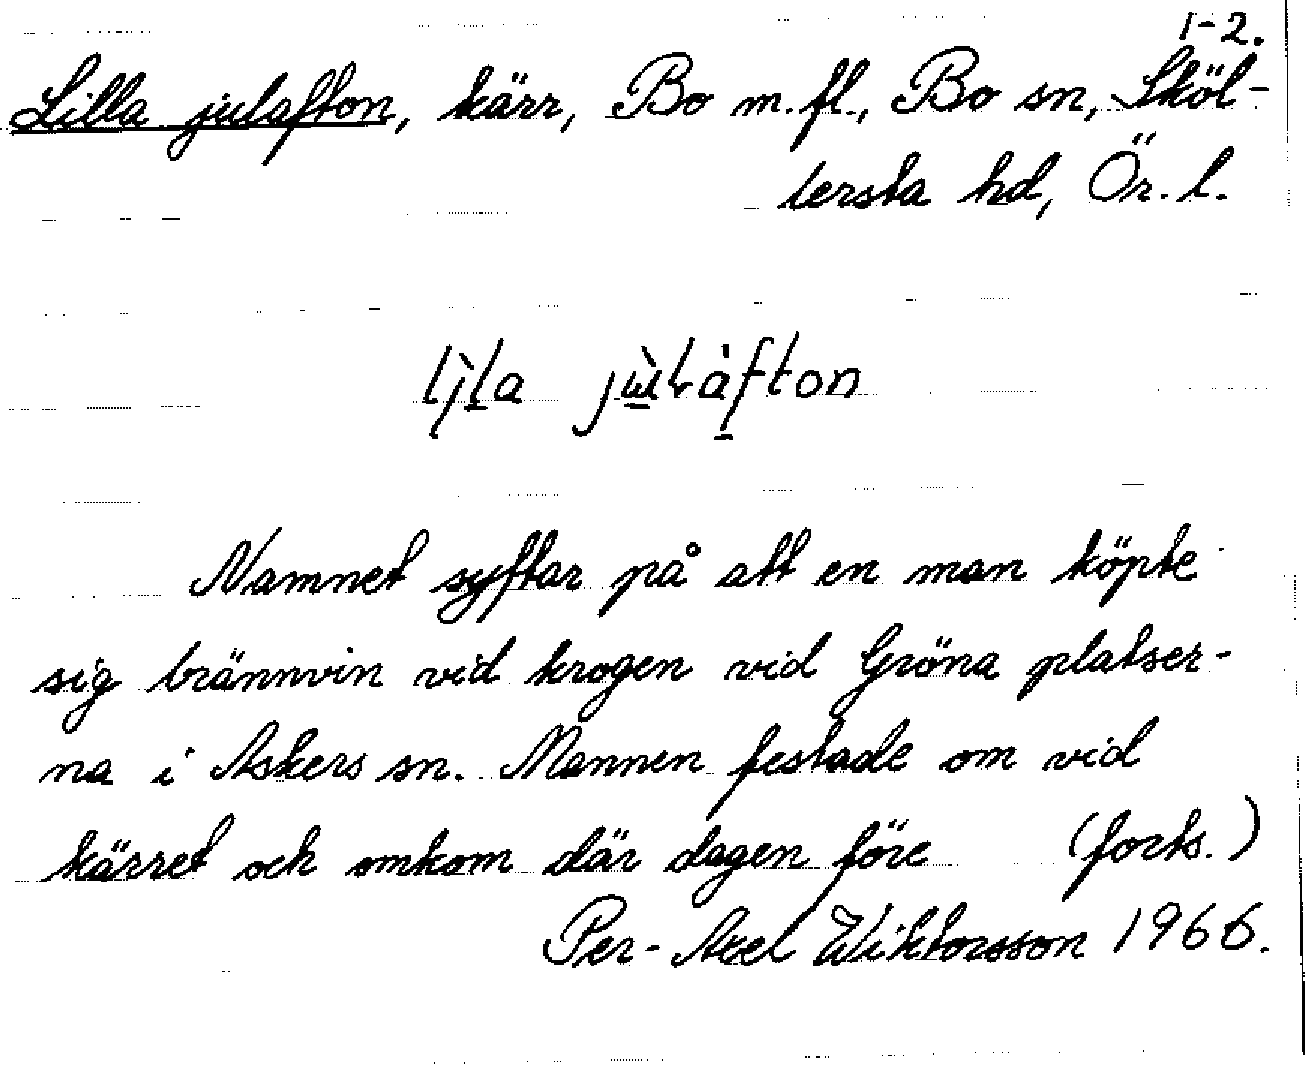 1-2.
Lilla julafton, kärr, Bo m.fl., Bo sn, Sköl-
lersta hd, Ör. l.
Namnet syftar på att en man köpte
sig brännvin vid krogen vid Gröna platser-
na i Askers sn. Mannen festade om vid
kärret och omkom där dagen före (forts.)
Per-Axel Wiktorsson 1966.